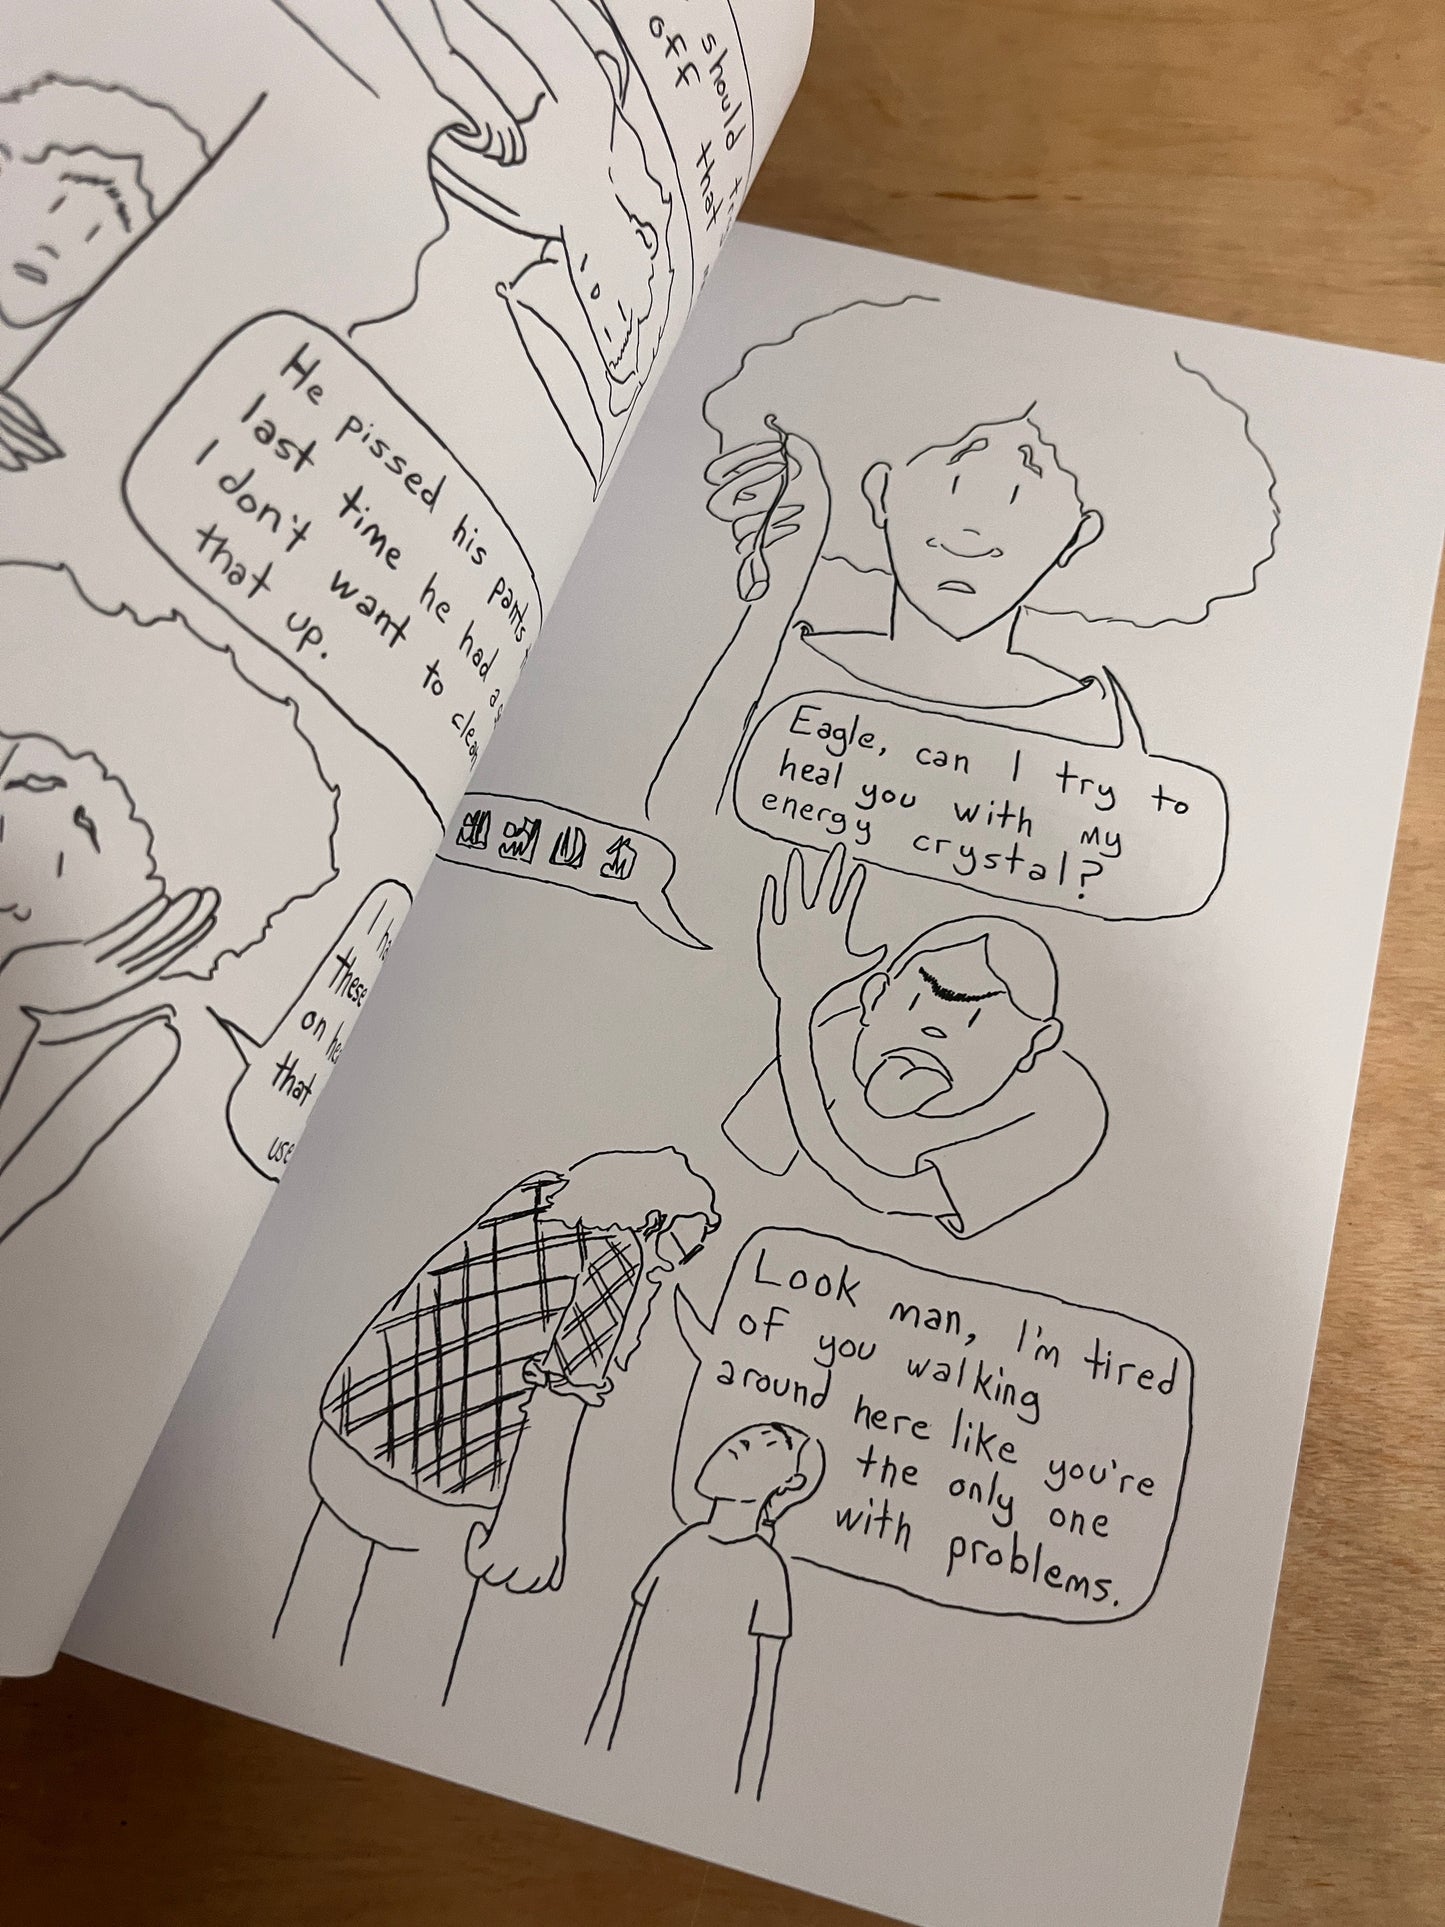 should
off that
He pissed his pants
last time he had a
I don't want to clean
that up.
I
these
on
that
use
Eagle, can I try to
heal you with my
energy crystal?
Look man, I'm tired
of you walking
around here like you're
the only one
with problems.